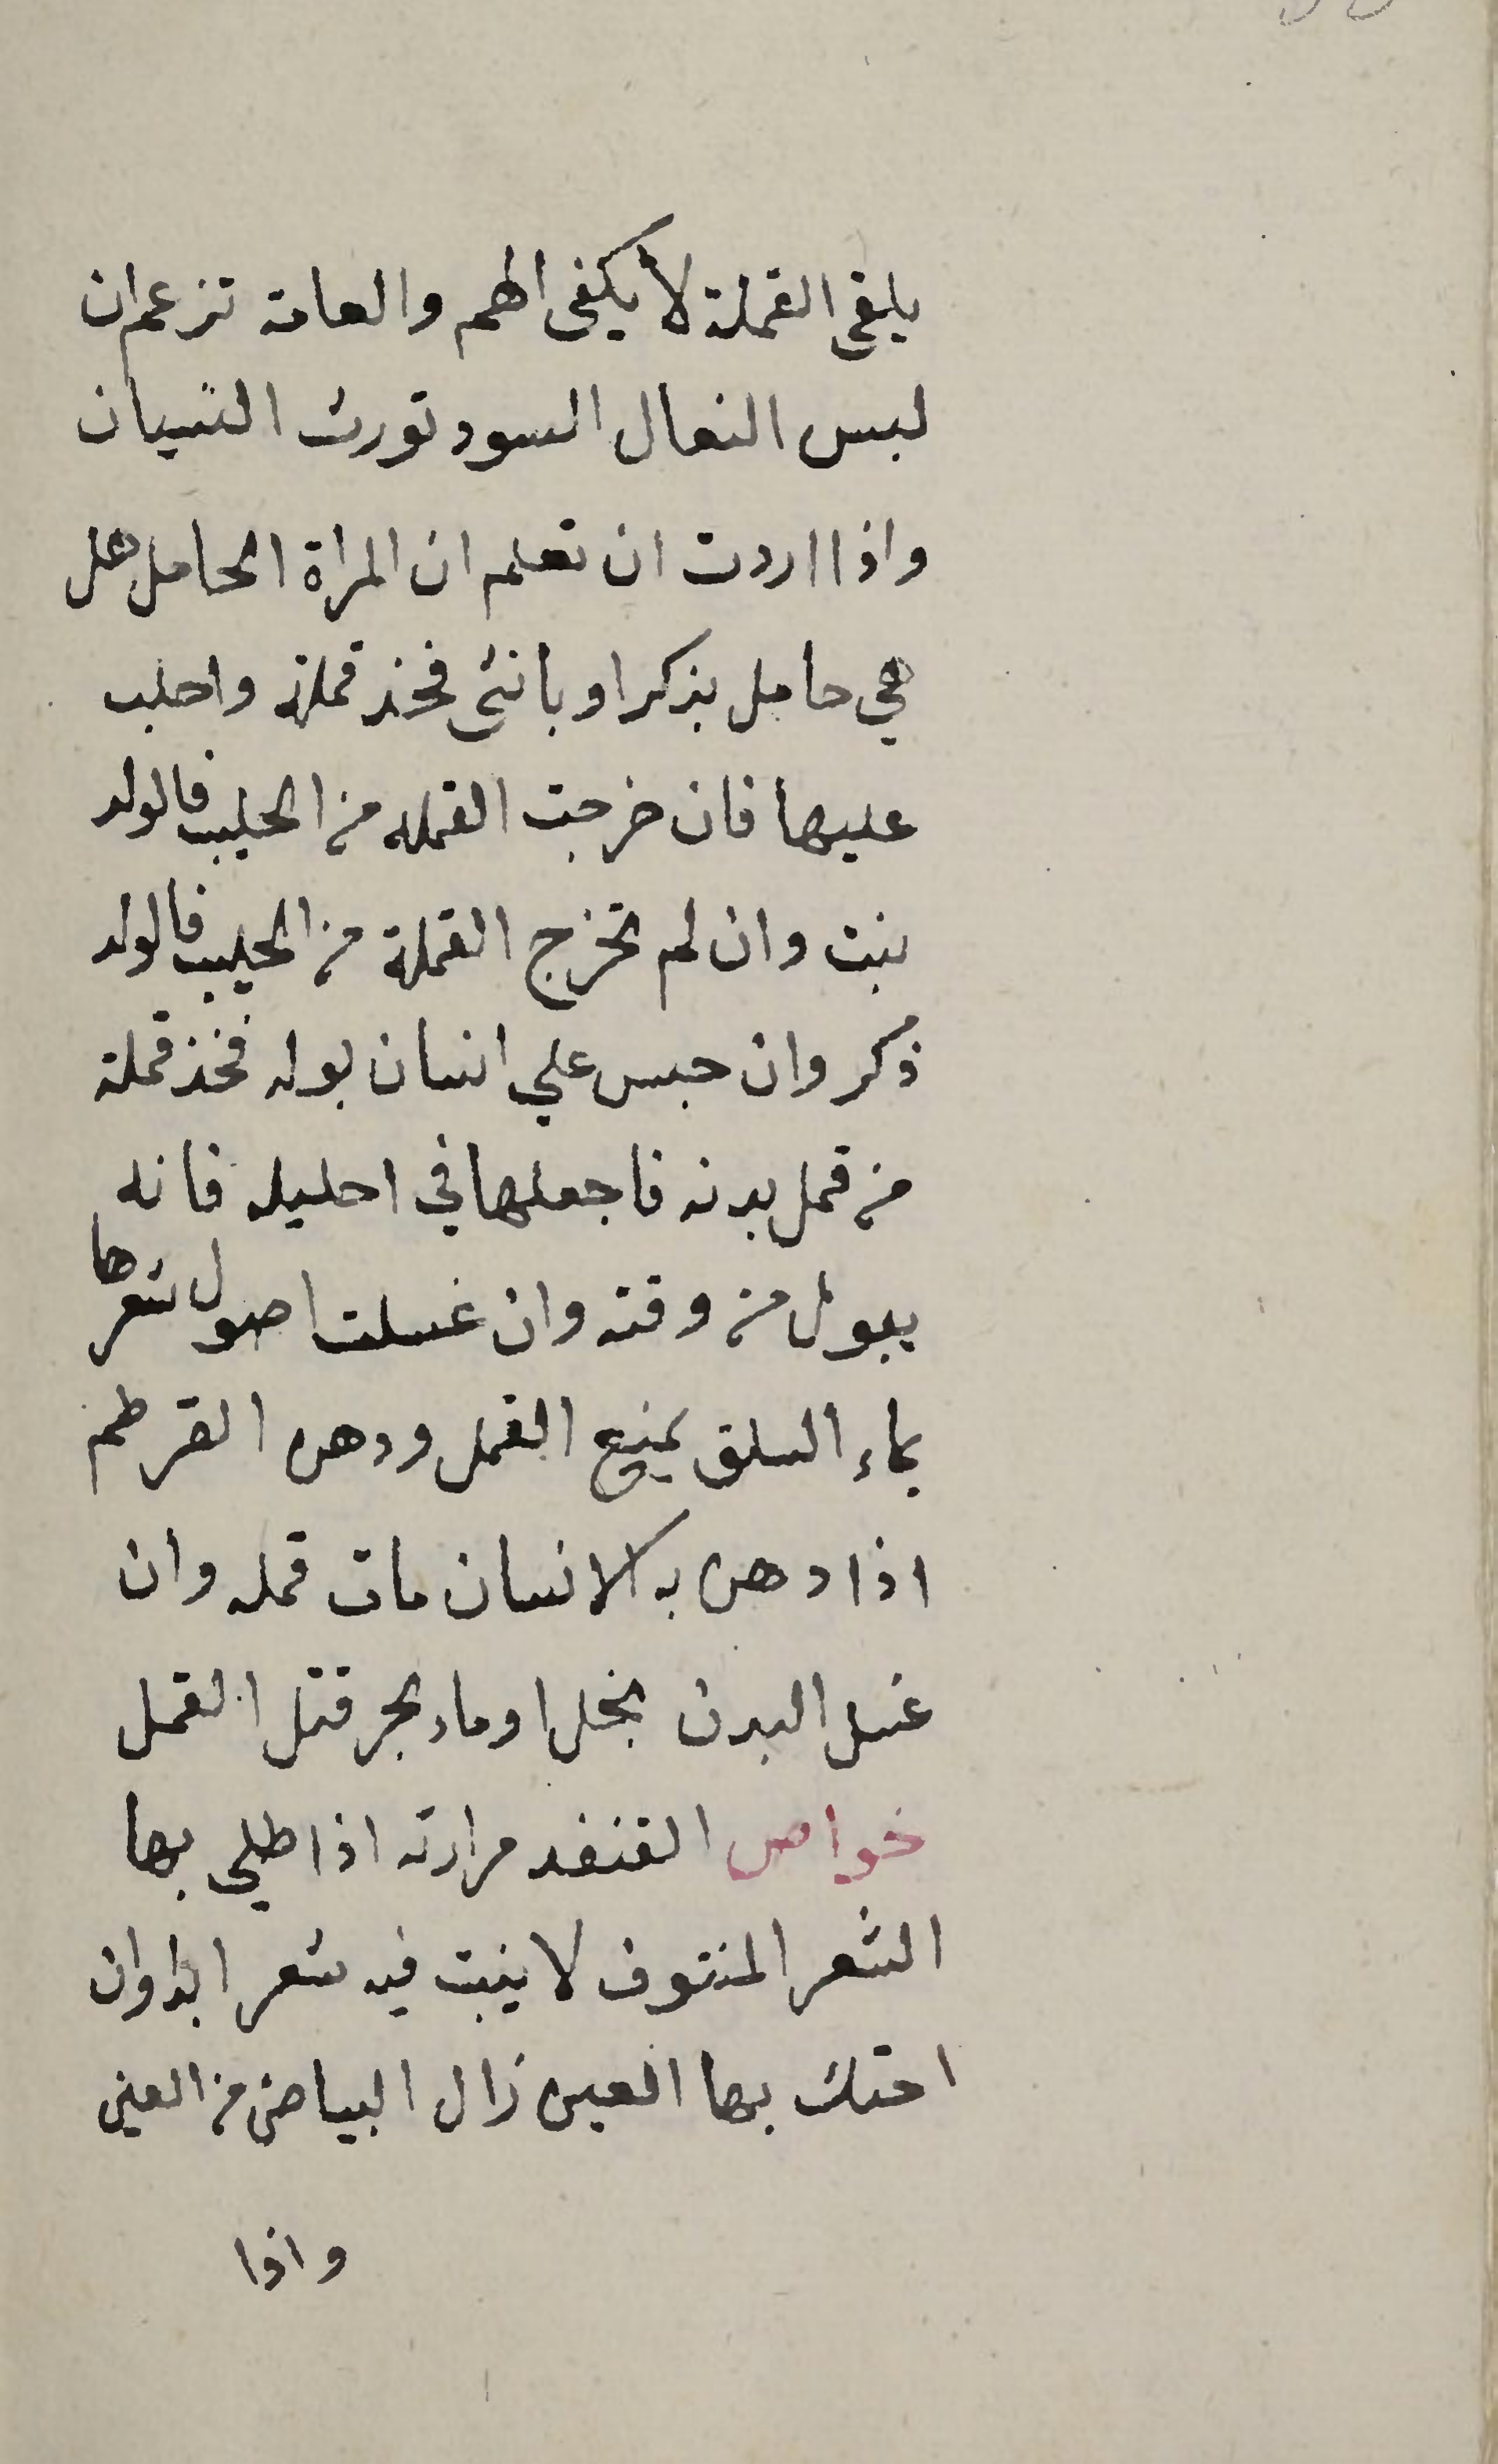 يلقى القملة لا يكفى الهم والعامة تزعم ان
لبس النعال السود تورث النسيان
واذا اردت ان تعلم ان المراة الحامل هل
هي حامل بذكر او بانثى فخذ قملة واحلب
عليها فان خرجت القمله من الحليب فالولد
بنت وان لم تخرج القملة من الحليب فالولد
ذكر وان حبس علي انسان بوله فخذ قملة
من قمل بدنه فاجعلها في احليله فانه
يبول من وقته وان غسلت اصول شعرها
بماء السلق يمنع القمل ودهن القرطم
اذا دهن به الانسان مات قمله وان
غسل البدن بخل او ماء بحر قتل القمل
خواص القنفد مرارته اذا طلي بها
الشعر المنتوف لا ينبت فيه شعر ابدا وان
احتك بها العين زال البياض من العين
واذا